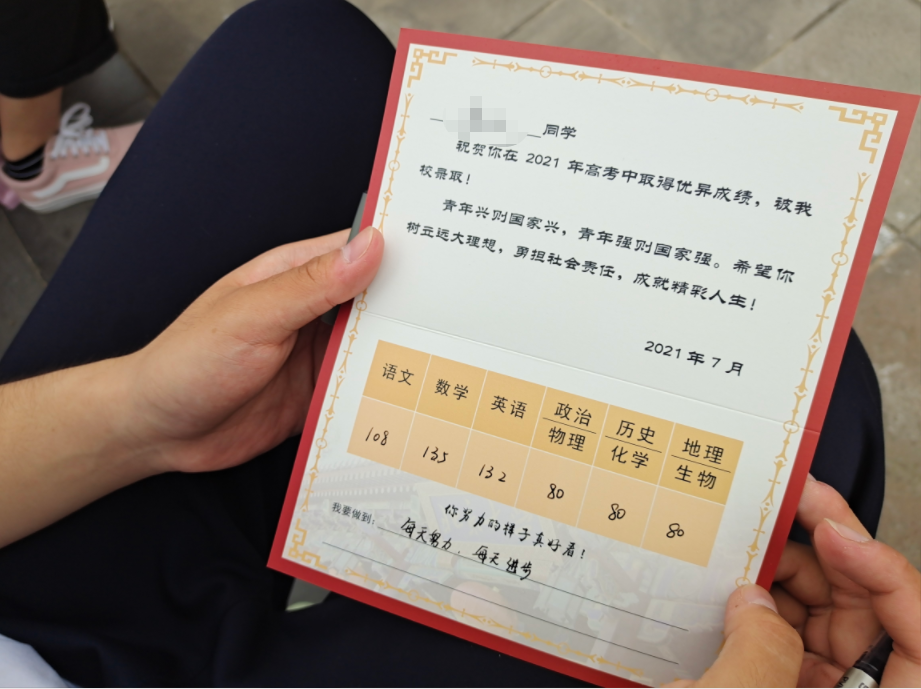 同学
祝贺你在 2021 年高考中取得优异成绩，被我
校录取！
青年兴则国家兴，青年强则国家强。希望你
树立远大理想，勇担社会责任，成就精彩人生！
2021 年 7 月
语文 数学 英语 政治 物理 历史 化学 地理 生物
108 135 132 80 80 80
你努力的样子真好看！
我要做到：每天努力、每天进步